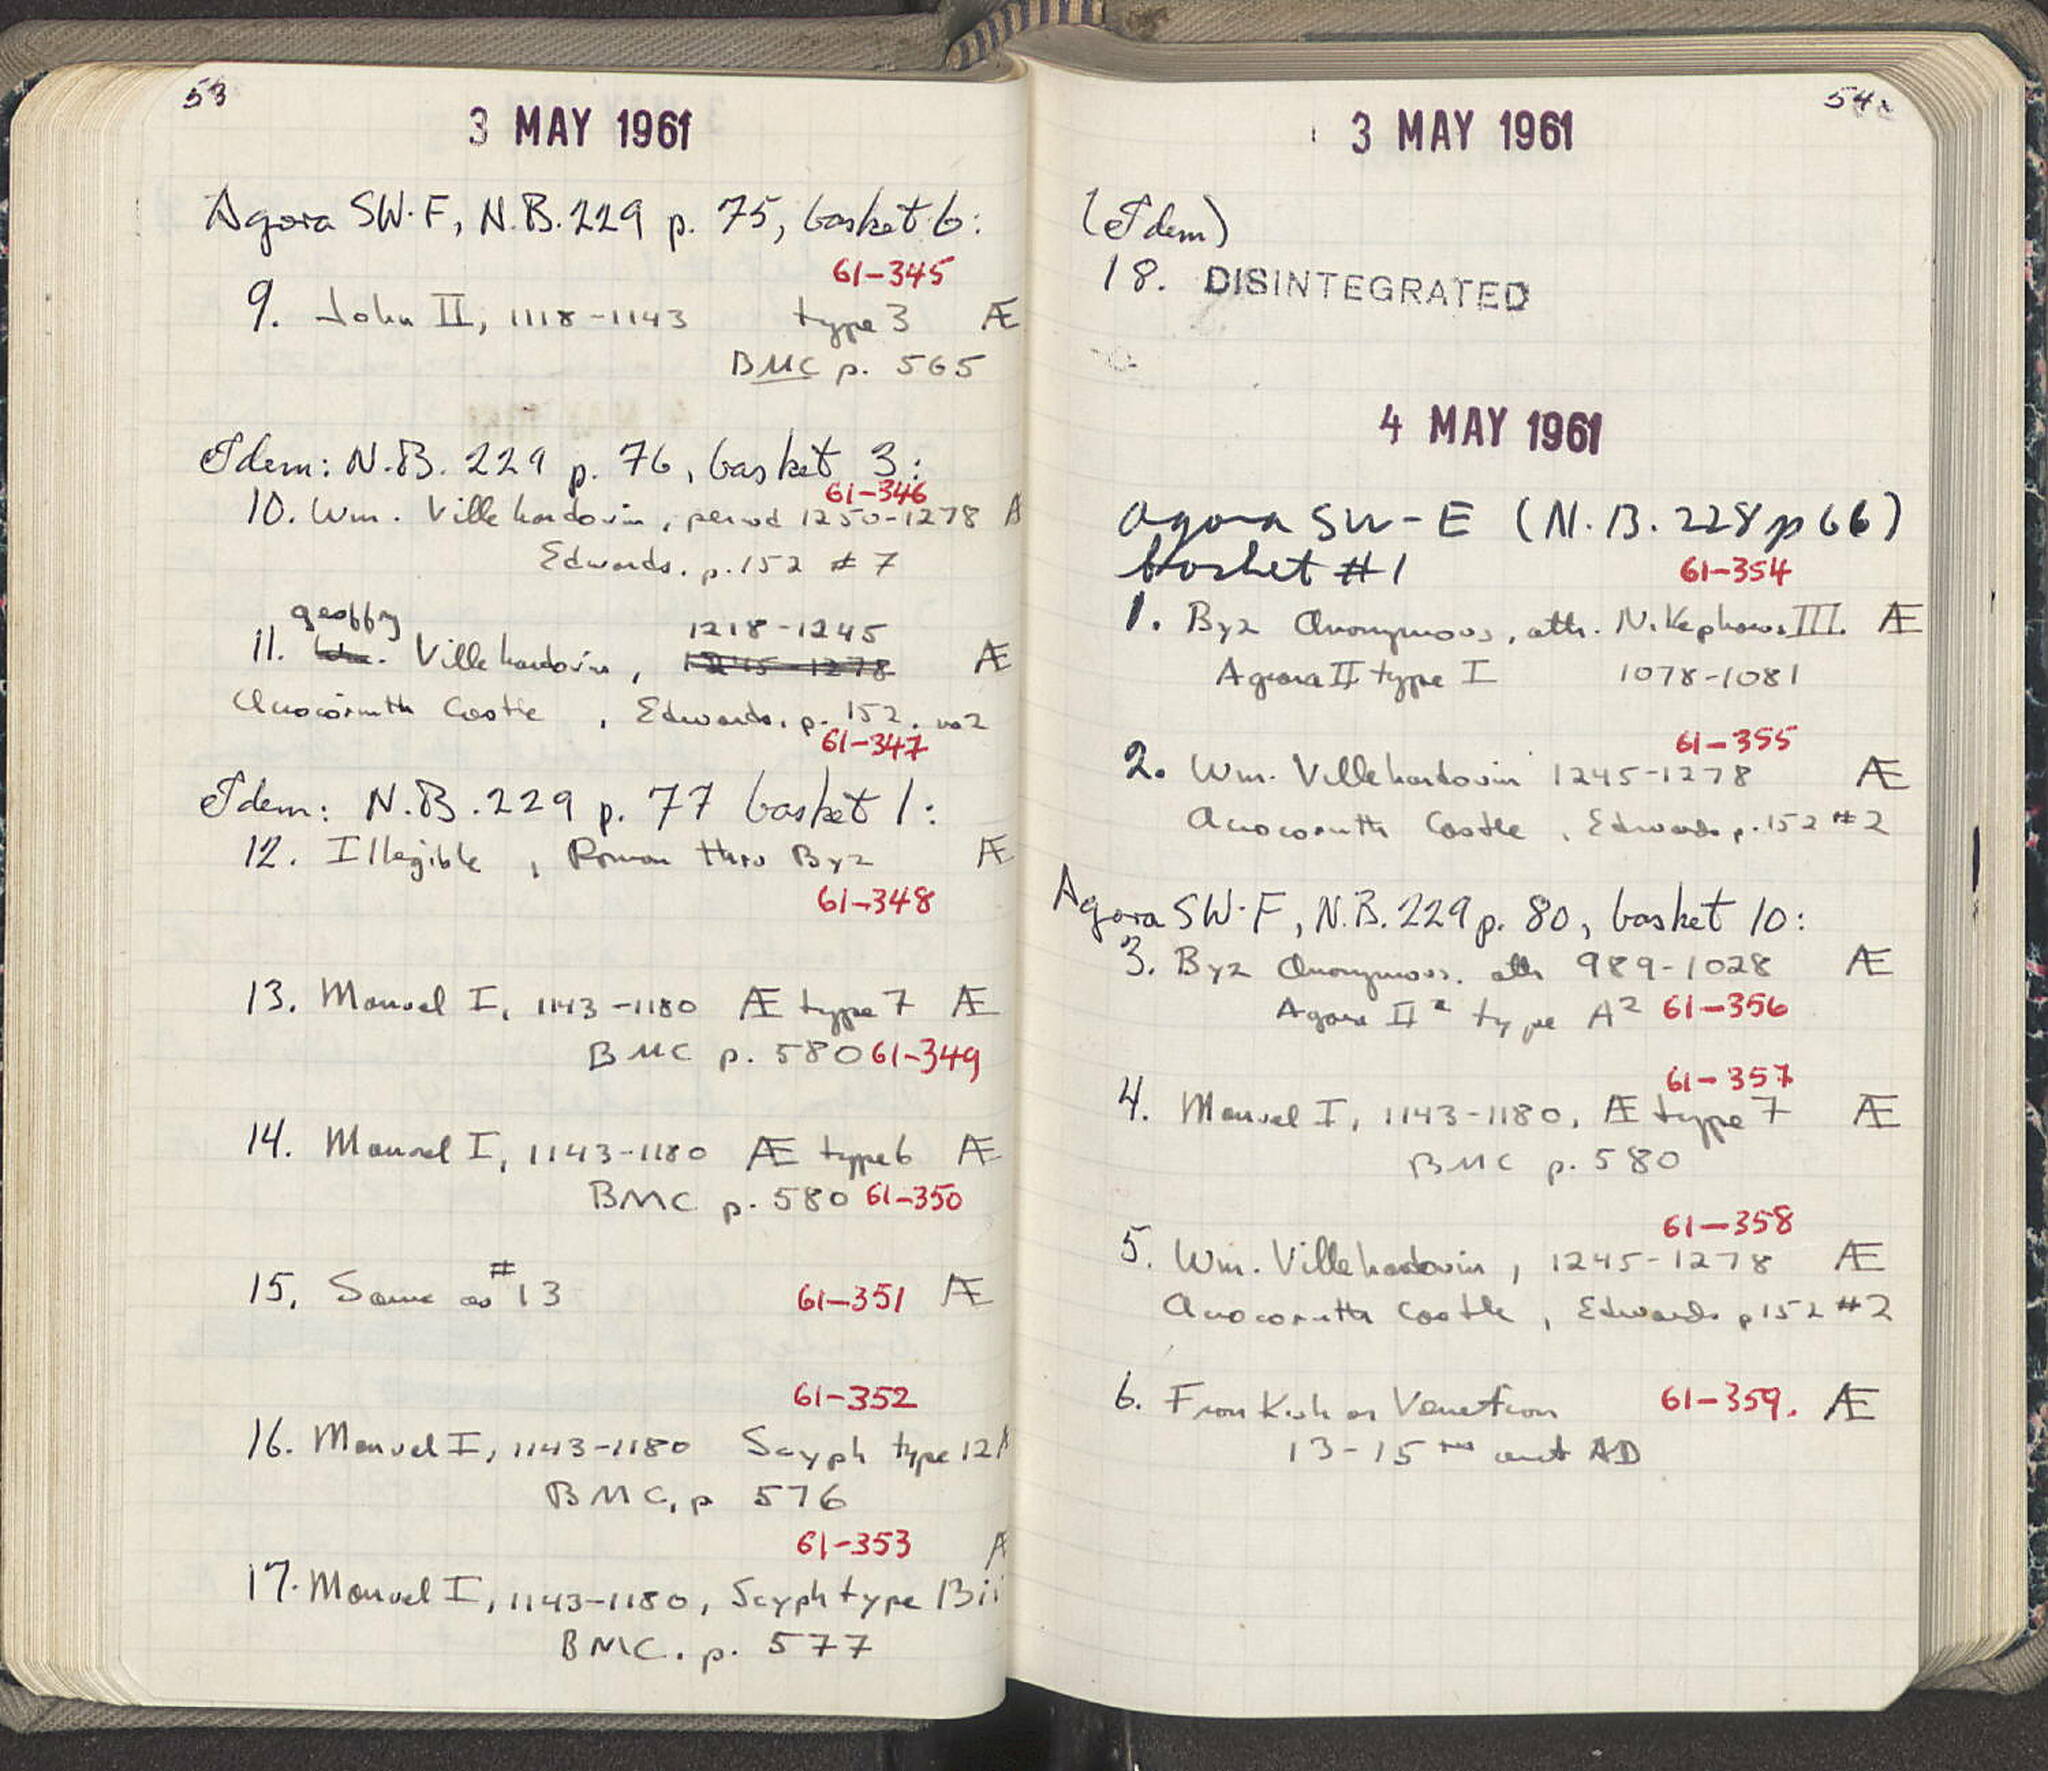 53
3 MAY 1961
Agora SW-F, N.B. 229 p. 75, basket 6:
61-345
9. John II, 1118-1143 type 3 Æ
BMC p. 565
Idem: N.B. 229 p. 76, basket 3:
61-346
10. Wm. Villehardouin, period 1250-1278 Æ
Edwards. p. 152 #7
Geoffry 1218-1245
11. Wm. Villehardouin, 1245-1278 Æ
Acrocorinth Castle, Edwards. p. 152. no 2
61-347
Idem: N.B. 229 p. 77 basket 1:
12. Illegible, Roman thru Byz Æ
61-348
13. Manuel I, 1143-1180 Æ type 7 Æ
BMC p. 580 61-349
14. Manuel I, 1143-1180 Æ type 6 Æ
BMC p. 580 61-350
15. Same as #13 61-351 Æ
61-352
16. Manuel I, 1143-1180 Scyph type 12 Æ
BMC, p 576
61-353 Æ
17. Manuel I, 1143-1180, Scyph type 13ii
BMC. p. 577
54
3 MAY 1961
(Idem)
18. DISINTEGRATED
4 MAY 1961
Agora SW-E (N.B. 228 p 66)
basket #1 61-354
1. Byz Anonymous, attr. Nikephorus III. Æ
Agora II type I 1078-1081
61-355
2. Wm. Villehardouin 1245-1278 Æ
Acrocorinth Castle, Edwards p. 152 #2
Agora SW-F, N.B. 229 p. 80, basket 10:
3. Byz Anonymous. attr 989-1028 Æ
Agora II² type A² 61-356
61-357
4. Manuel I, 1143-1180, Æ type 7 Æ
BMC p. 580
61-358
5. Wm. Villehardouin, 1245-1278 Æ
Acrocorinth Castle, Edwards p 152 #2
6. Frankish or Venetian 61-359. Æ
13-15th cent AD